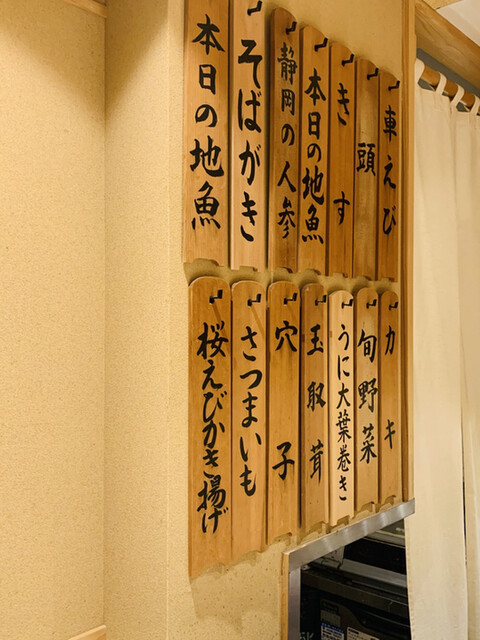 車えび
頭
きす
本日の地魚
静岡の人参
そばがき
本日の地魚
カキ
旬野菜
うに大葉巻き
玉取茸
穴子
さつまいも
桜えびかき揚げ